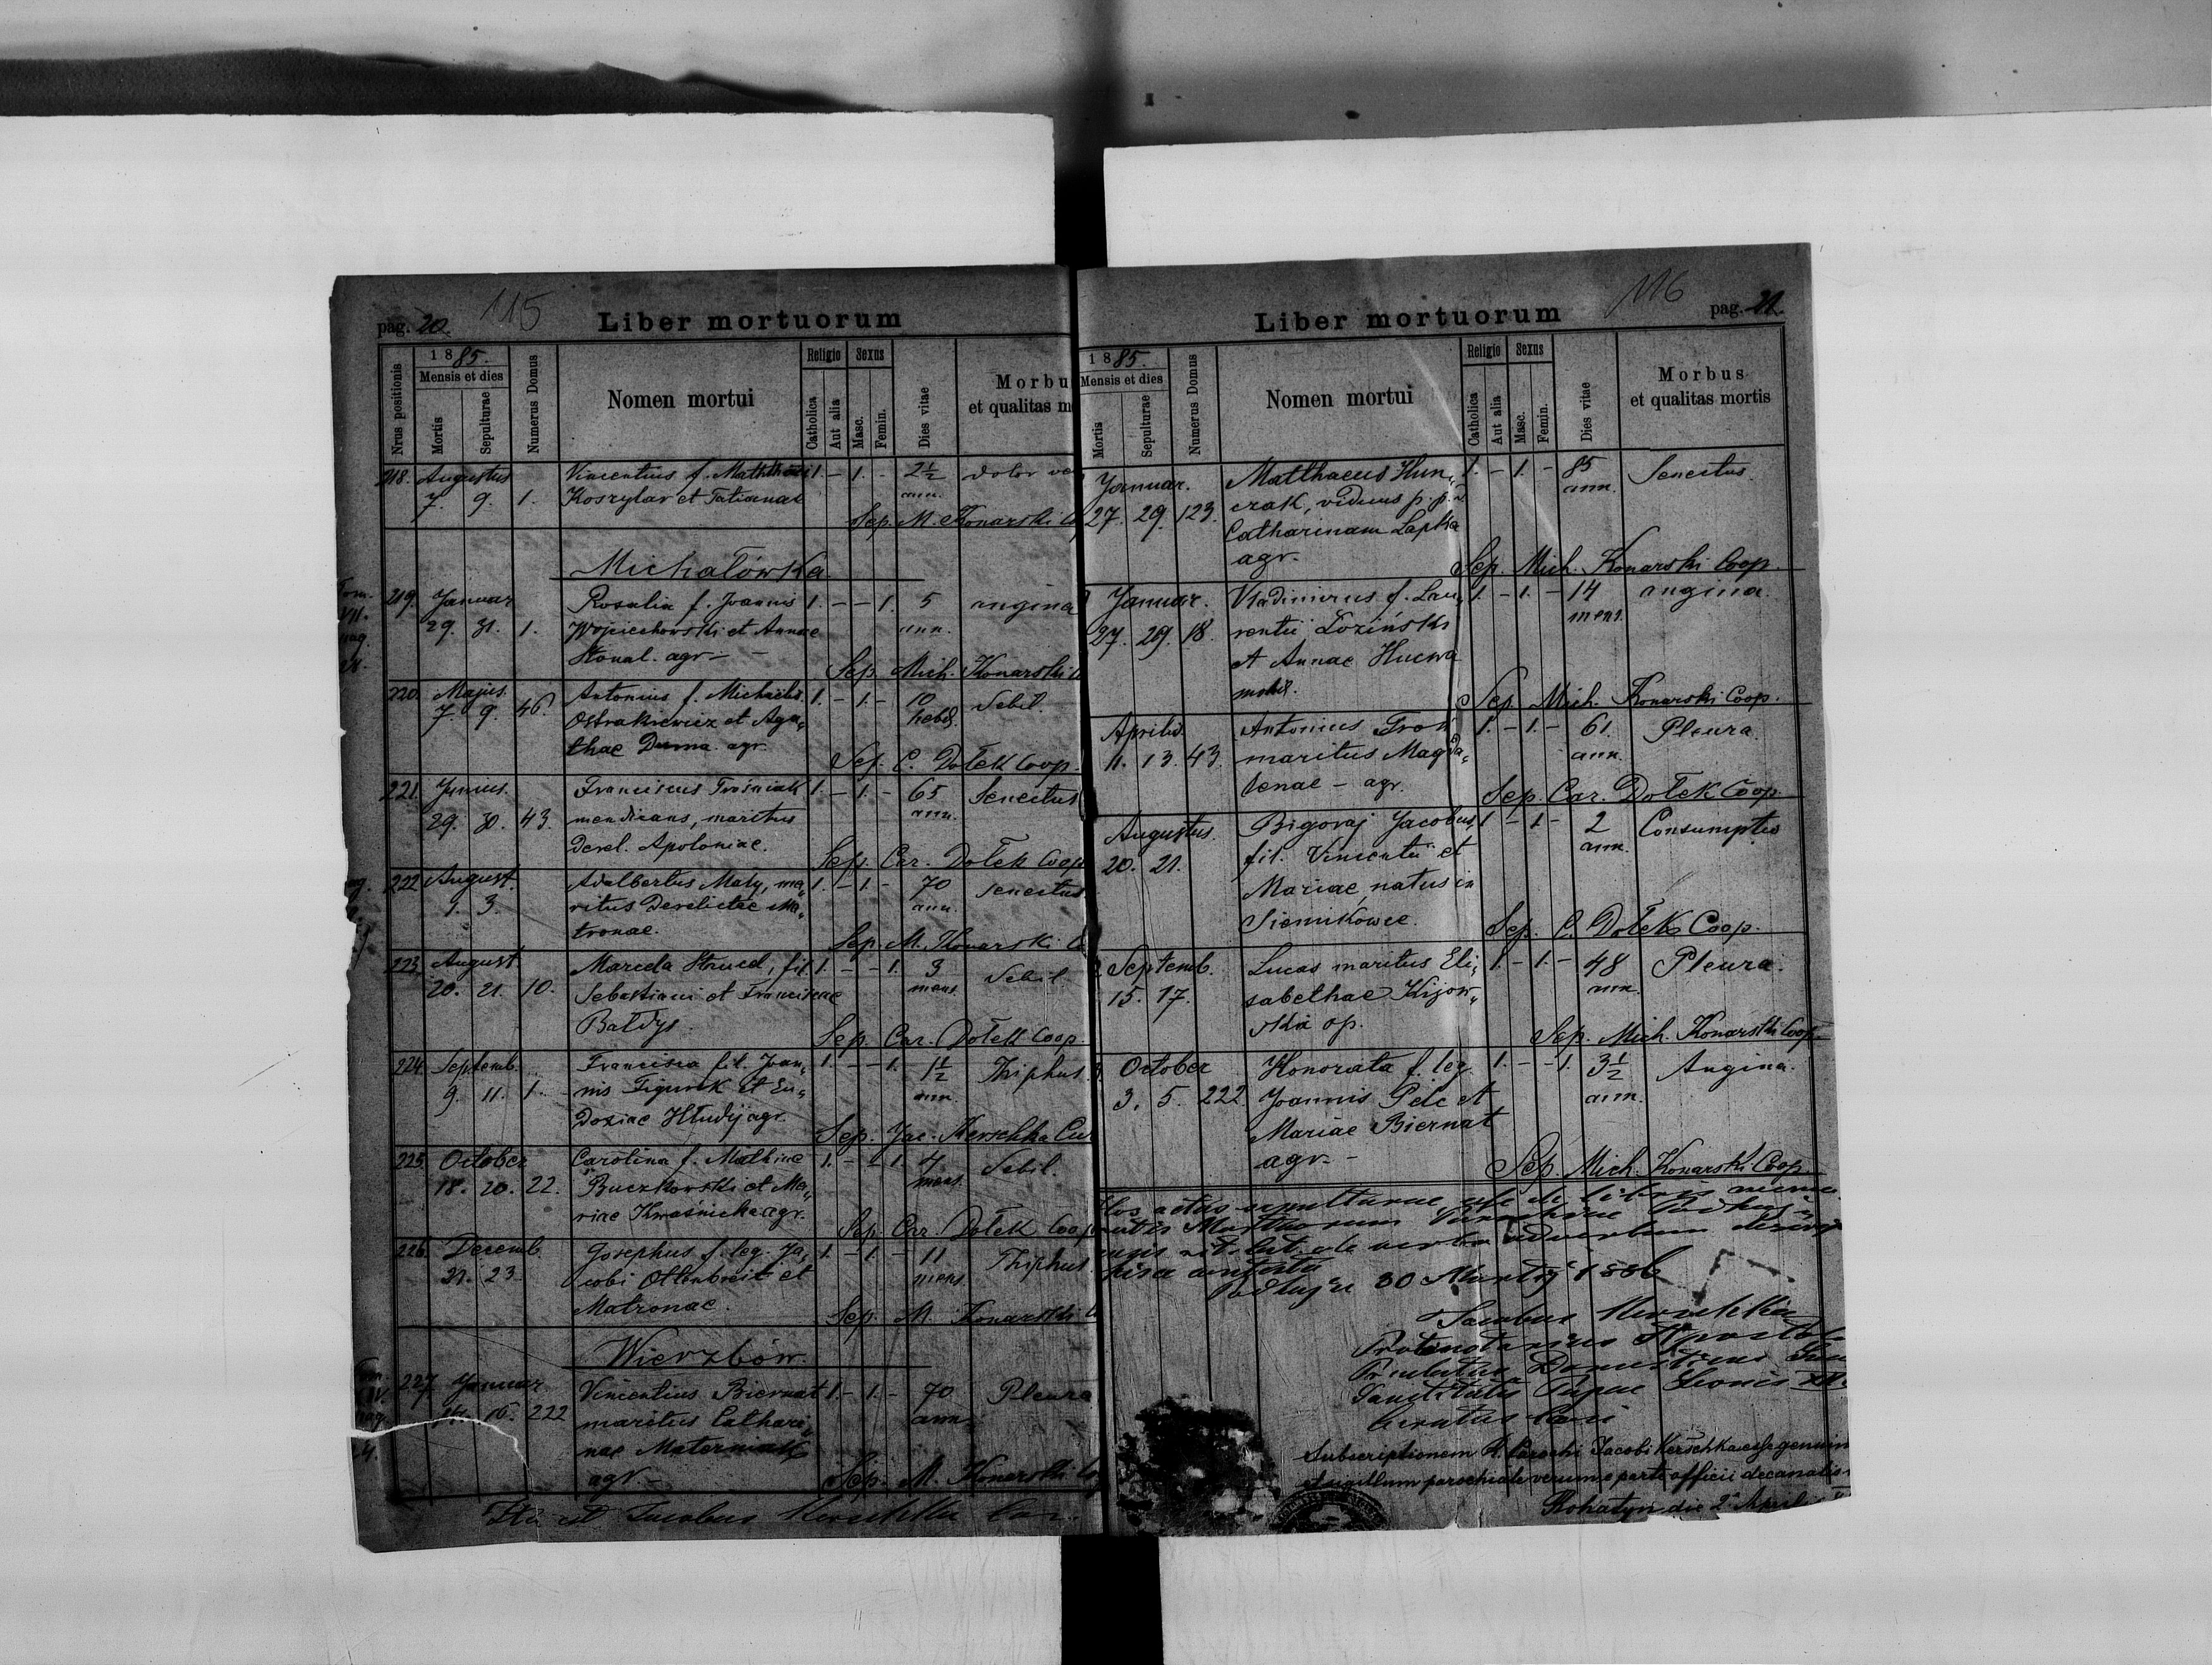 pag. 20. 115
Liber mortuorum
Nrus positionis
1885.
Mensis et dies
Mortis
Sepulturae
Numerus Domus
Nomen mortui
Religio
Catholica
Aut alia
Sexus
Masc.
Femin.
Dies vitae
Morbu
et qualitas m
218. Augustus Vincentius f. Matthaei 1. - 1. - 2½ dolor
7. 9. 1. Koszylar et Tatianae ann.
Sep. M. Konarski
Michałówka
219. Januar Rosalia f. Joannis 1. - - 1. 5 angina
29. 31. 1. Wojciechowski et Annae ann.
Kowal. agr. -
Sep. Mich. Konarski
220. Majus. Antonius f. Michaelis 1. - 1. - 10 debil
7. 9. 46. Ostrakiewicz et Aga„ hebd.
thae Duma. agr.
Sep. C. Dołek Coop.
221. Junius. Franciscus Trośniak 1. - 1. - 65 Senectus
29. 30. 43. mendicans, maritus ann.
derel. Apoloniae.
Sep. Car. Dołek Coop
222 August. Adalbertus Mały, ma„ 1. - 1. - 70 senectus
1. 3. ritus derelictae Ma„ ann.
tronae.
Sep. M. Konarski
223. August. fil. 1. - - 1. 3 debil
20. 21. 10. Sebastiani et Franciscae mens.
Bałdys.
Sep. Car. Dołek Coop.
224. Septemb. Francisca fil. Joan„ 1. - - 1. 1½ Thiphus.
9. 11. 1. nis Figurek et Eu„ ann.
doxiae Hłudij agr.
Sep. Jac. Kerschka Cur
225. October Carolina f. Mathiae 1. - - 1. 4 debil.
18. 20. 22. Buczkowski et Ma„ mens.
riae Kwaśnicka agr.
Sep. Car. Dołek Coop
226. Decemb. Josephus f. leg. Ja„ 1. - 1. - 11 Thiphus.
21. 23. cobi Ottenbreit et mens.
Matronae.
Sep. M. Konarski
Wierzbów.
227. Januar Vincentius Biernat 1. - 1. - 70 Pleura
14. 16. 222 maritus Cathari„ ann.
nae Materniak
agr. -
Sep. M. Konarski
Jacobus Kerschka
116 pag. 21.
Liber mortuorum
1885.
Mensis et dies
Mortis
Sepulturae
Numerus Domus
Nomen mortui
Religio
Catholica
Aut alia
Sexus
Masc.
Femin.
Dies vitae
Morbus
et qualitas mortis
Januar. Matthaeus Hun„ 1. - 1. - 85 Senectus
27. 29. 123. czak, viduus p. p. ann.
Catharinam Łapka
agr.
Sep. Mich. Konarski Coop.
Januar. Vladimirus f. Lau„ 1. - 1. - 14 angina.
27. 29. 18. rentii Łoziński mens.
et Annae Hucwa
Sep. Mich. Konarski Coop.
Aprilis. Antonius 1. - 1. - 61. Pleura.
11. 13. 43. maritus Magda„ ann.
lenae - agr.
Sep. Car. Dołek Coop.
Augustus. Bigoraj Jacobus, 1. - 1. - 2 Consumptio
20. 21. fil. Vincentii et ann.
Mariae, natus in
Siemikowce.
Sep. C. Dołek Coop.
Septemb. Lucas maritus Eli„ 1. - 1. - 48 Pleura.
15. 17. sabethae Kijow„ ann.
ska op.
Sep. Mich. Konarski Coop.
October Honorata f. leg. 1. - - 1. 3½ Angina.
3. 5. 222. Joannis Pelc et ann.
Mariae Biernat
agr. -
Sep. Mich. Konarski Coop.
Hos actus sepulturae de libris
Mortuorum
de verbo adverbum
Podhajce 30 Martij 1886
Jacobus Kerschka
Protonotarius Apostol
Praelatus Domesticus
Sanctitatis Papae Leonis XIII
Subscriptionem R. Parochi Jacobi Kerschka esse genuin
et sigillum parochiale verum e parte officii decanalis
Rohatyn die 2 Aprilis